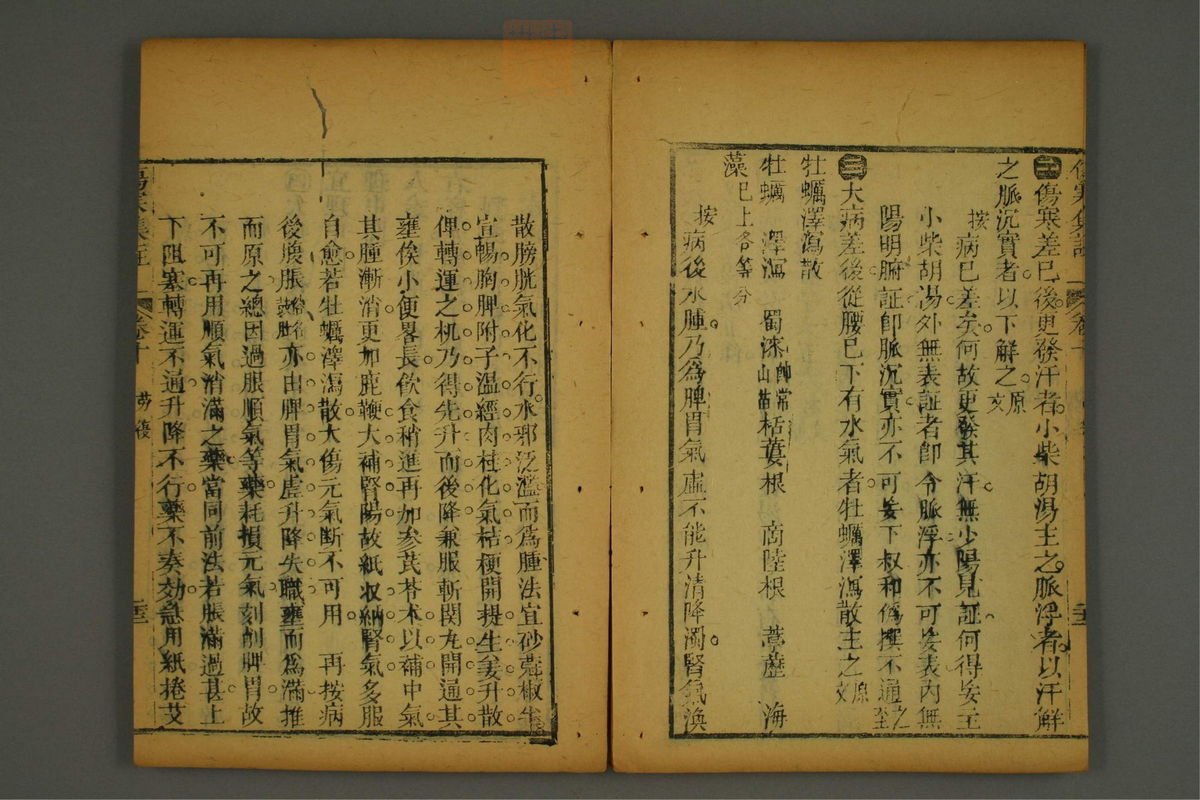 傷寒集註 卷十
二 傷寒差已後更發汗者小柴胡湯主之脈浮者以汗解
之脈沉實者以下解之 原文
按病已差矣何故更發其汗無少陽見証何得妄主
小柴胡湯外無表証者卽令脈浮亦不可妄表內無
陽明腑証卽脈沉實亦不可妄下叔和僞撰不通之至
三 大病差後從腰已下有水氣者牡蠣澤瀉散主之 原文
牡蠣澤瀉散
牡蠣 澤瀉 蜀漆 卽常山苗 栝蔞根 商陸根 葶藶 海
藻 已上各等分
按病後水腫乃爲脾胃氣虛不能升清降濁腎氣渙
散膀胱氣化不行水邪泛濫而爲腫法宜砂蔻椒半
宣暢胸脾附子溫經肉桂化氣桔梗開提生姜升散
俾轉運之机乃得先升而後降兼服斬関丸開通其
壅俟小便畧長飲食稍進再加參芪苓朮以補中氣
其腫漸消更加鹿鞭大補腎陽故紙收納腎氣多服
自愈若牡蠣澤瀉散大傷元氣斷不可用 再按病
後腹脹 亦由脾胃氣虛升降失職壅而爲滿推
而原之總因過服順氣等藥耗損元氣刻削脾胃故
不可再用順氣消滿之藥當同前法若脹滿過甚上
下阻塞轉運不通升降不行藥不奏効急用紙捲艾
傷寒集註 卷十 勞復